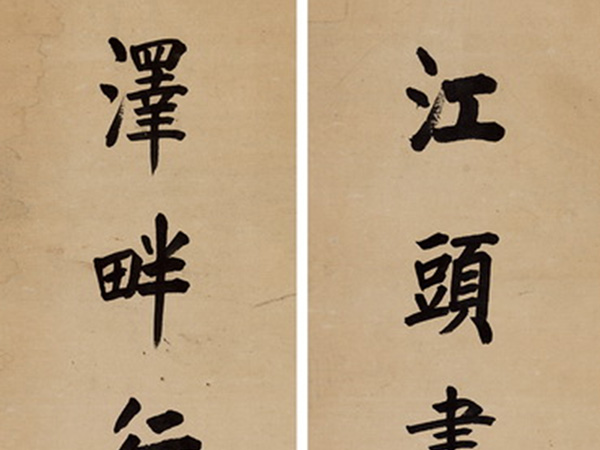 江頭
澤畔行